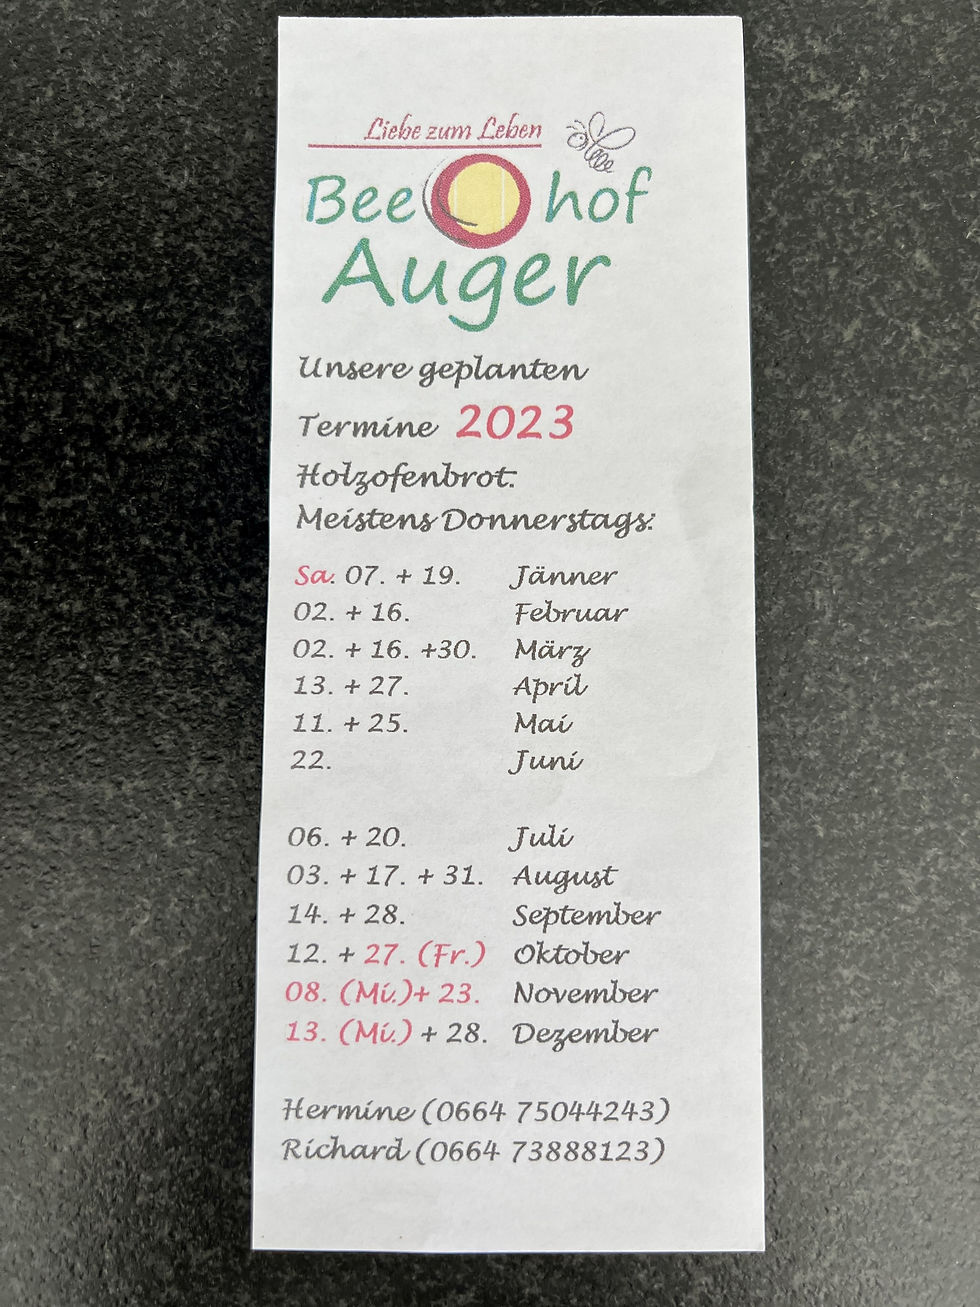 Liebe zum Leben
Bee hof
Auger
Unsere geplanten
Termine 2023
Holzofenbrot:
Meistens Donnerstags:
Sa. 07. + 19. Jänner
02. + 16. Februar
02. + 16. +30. März
13. + 27. April
11. + 25. Mai
22. Juni
06. + 20. Juli
03. + 17. + 31. August
14. + 28. September
12. + 27. (Fr.) Oktober
08. (Mi.)+ 23. November
13. (Mi.) + 28. Dezember
Hermine (0664 75044243)
Richard (0664 73888123)